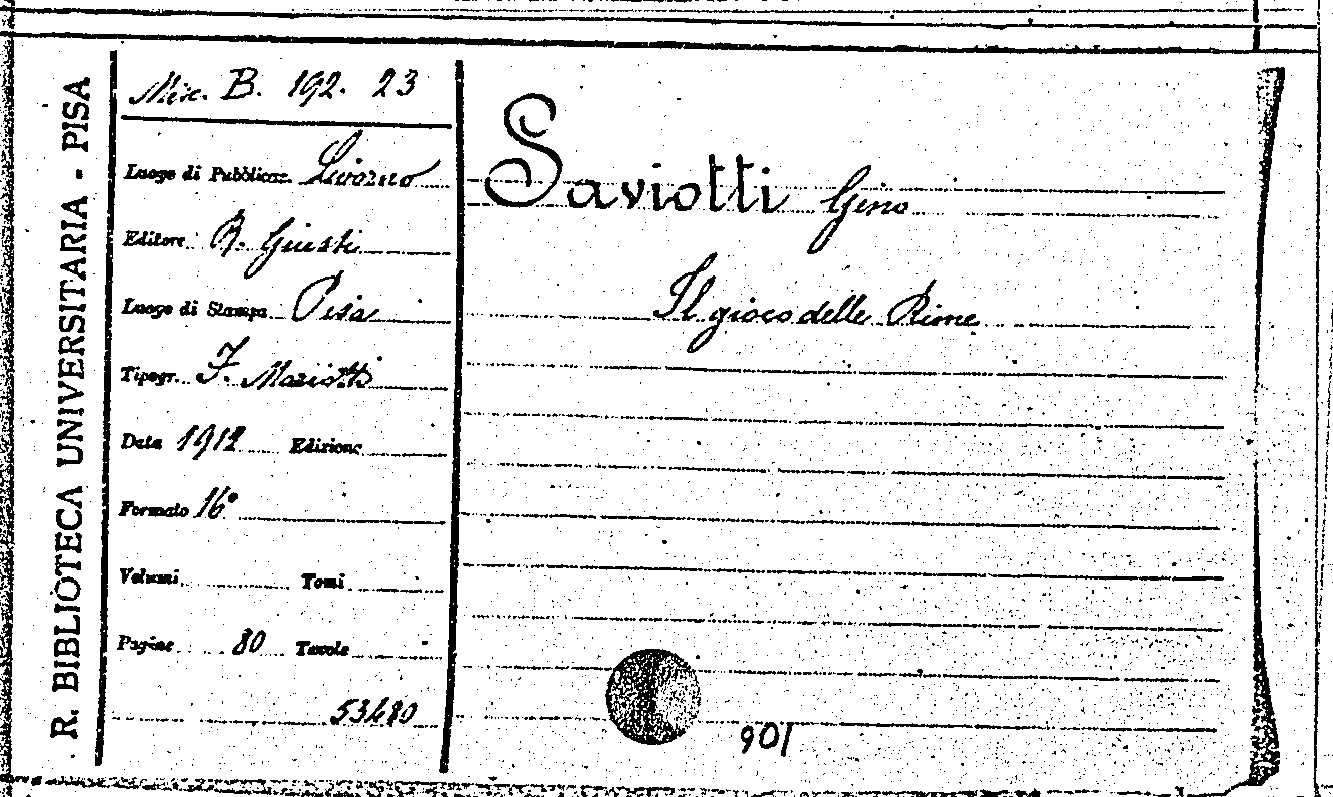 R. BIBLIOTECA UNIVERSITARIA - PISA
Misc. B. 192. 23
Luogo di Pubblicaz. Livorno
Editore R. Giusti
Luogo di Stampa Pisa
Tipogr. F. Mariotti
Data 1912 Edizione
Formato 16°
Volumi Tomi
Pagine 80 Tavole
53480
Saviotti Gino
Il gioco delle Rime
106